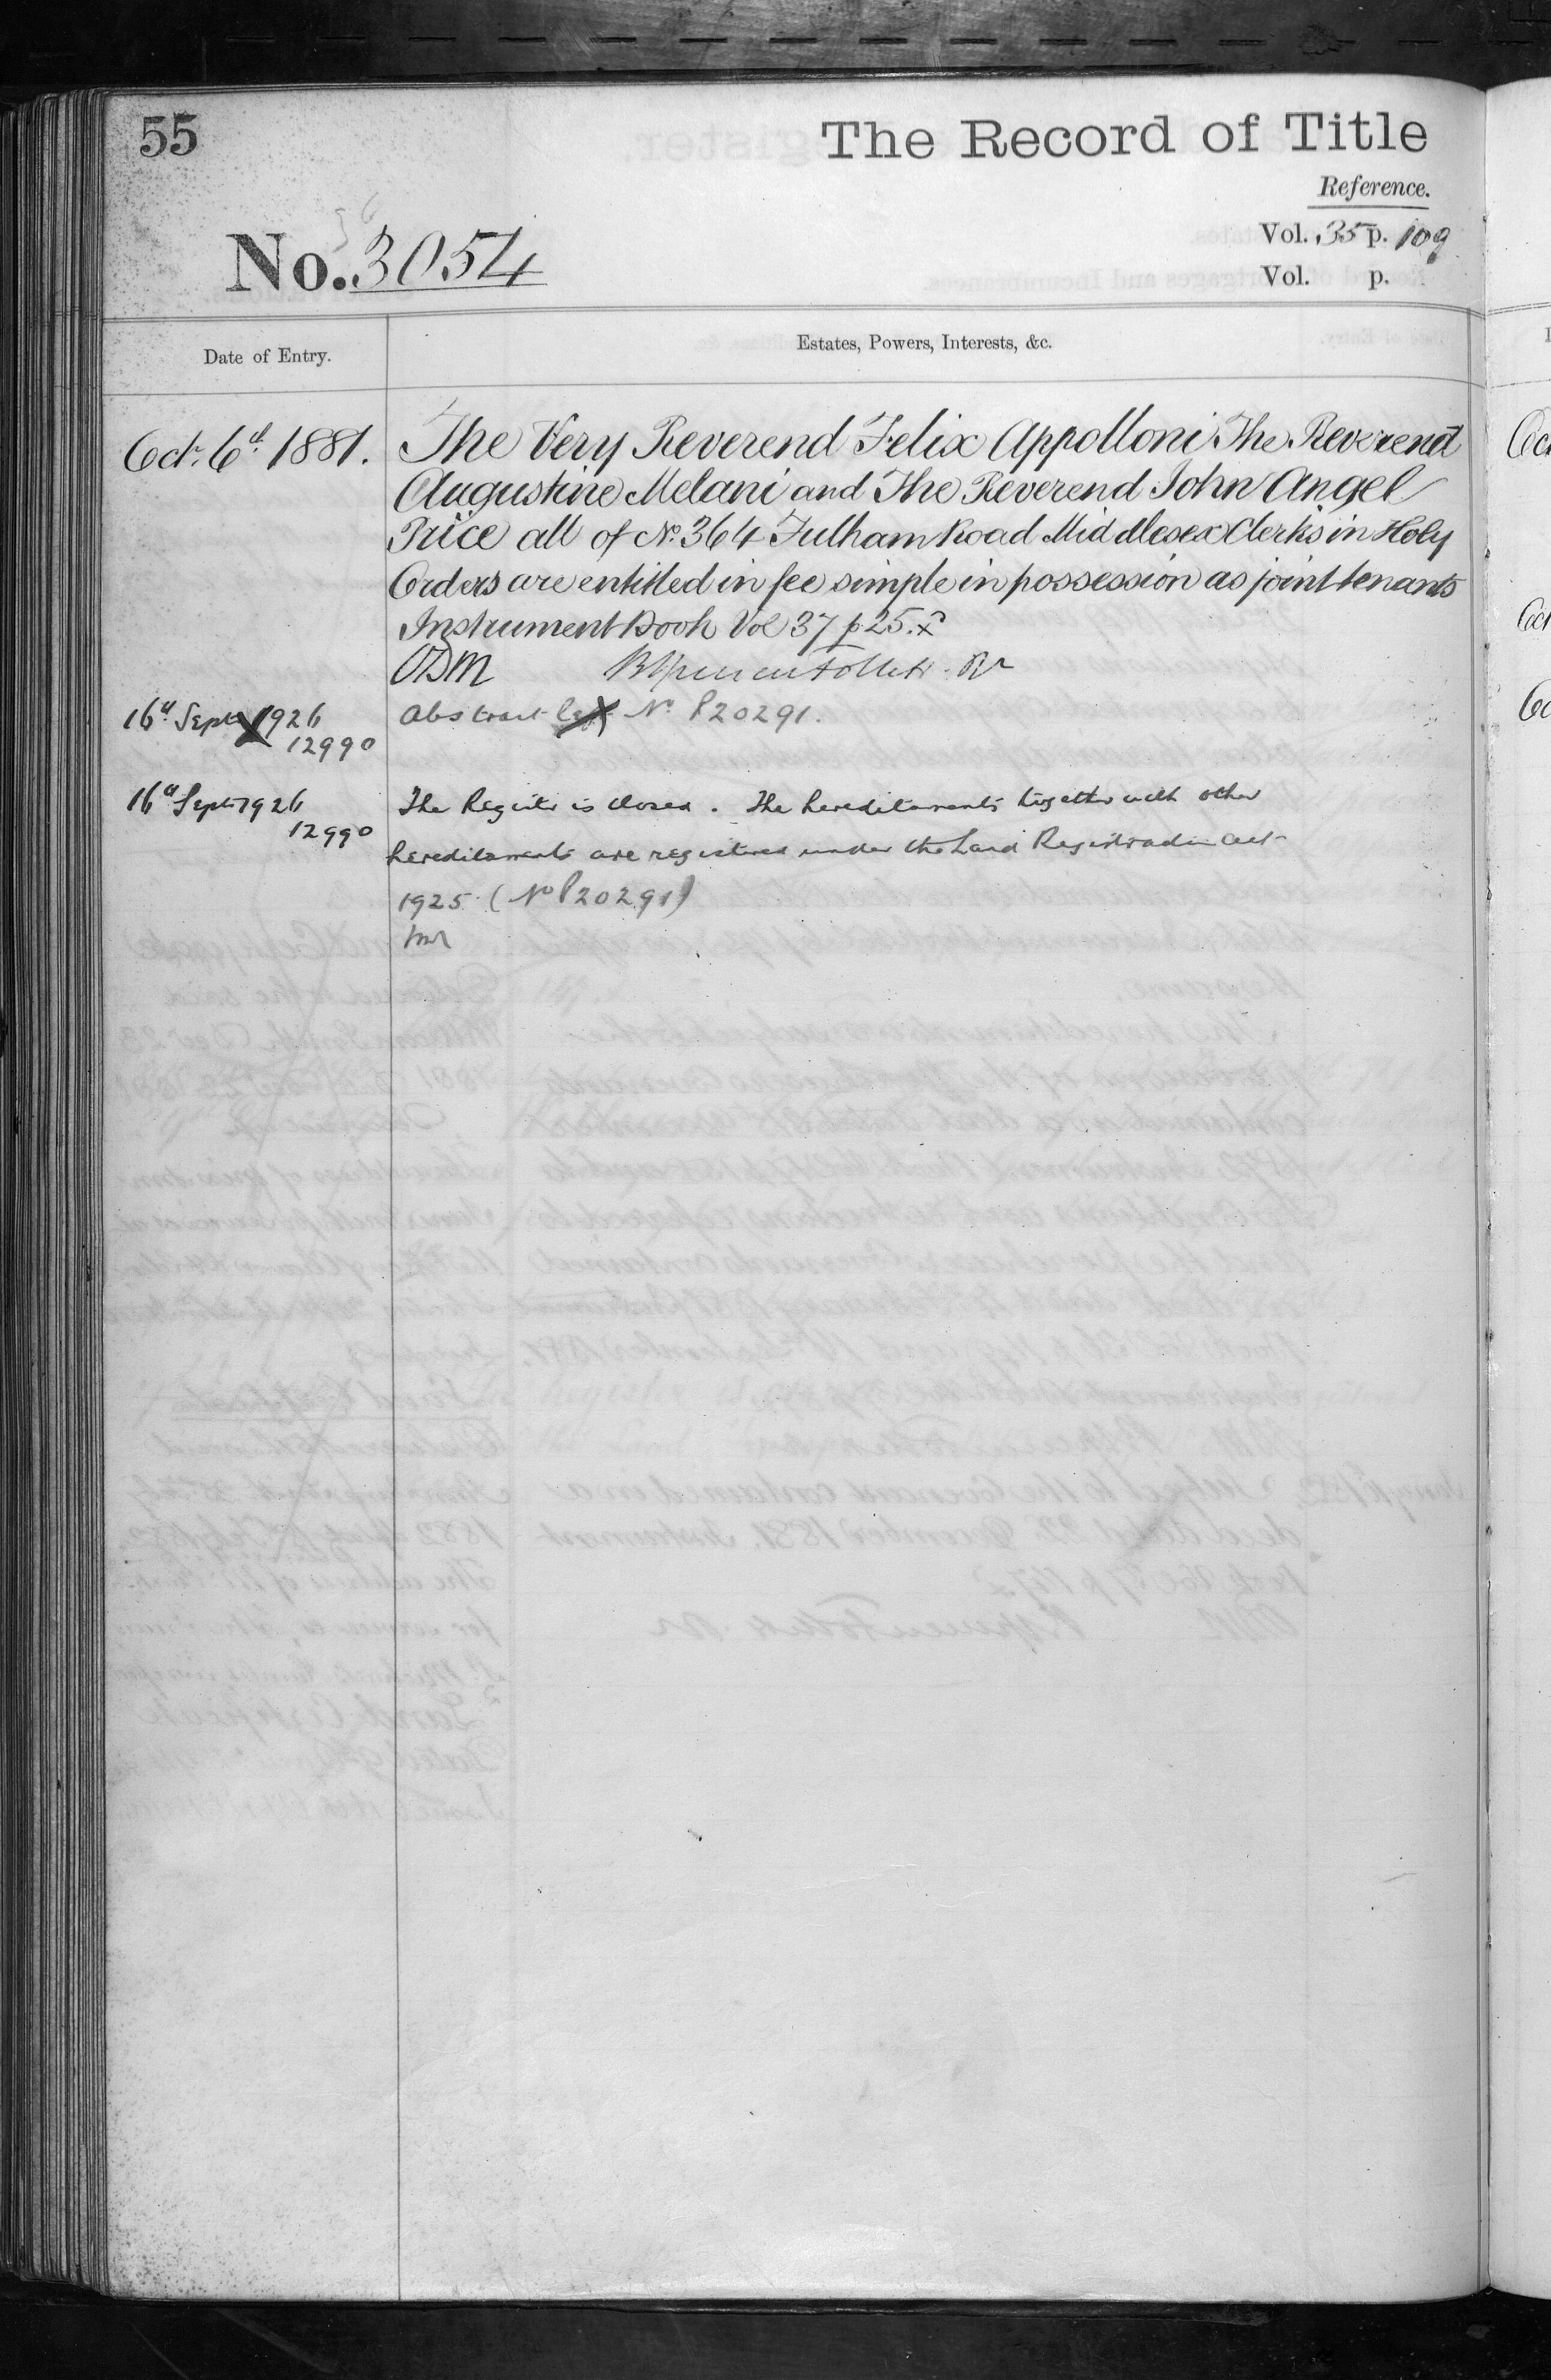 55
The Record of Title
Reference.
Vol. 35 p. 109
No. 3054
Vol. p.
Date of Entry.
Estates, Powers, Interests, &c.
Octr. 6th 1881.
The Very Reverend Felix Appolloni The Reverend
Augustine Melani and The Reverend John Angel
Price all of No. 364 Fulham Road Middlesex Clerks in Holy
Orders are entitled in fee simple in possession as joint tenants
Instrument Book Vol 37 p 25.
16th Sept 1926
12990
Abstract No P20291.
16th Sept 1926
12990
The Register is closed. The hereditaments together with other
hereditaments are registered under the Land Registration Act
1925 (No P20291)